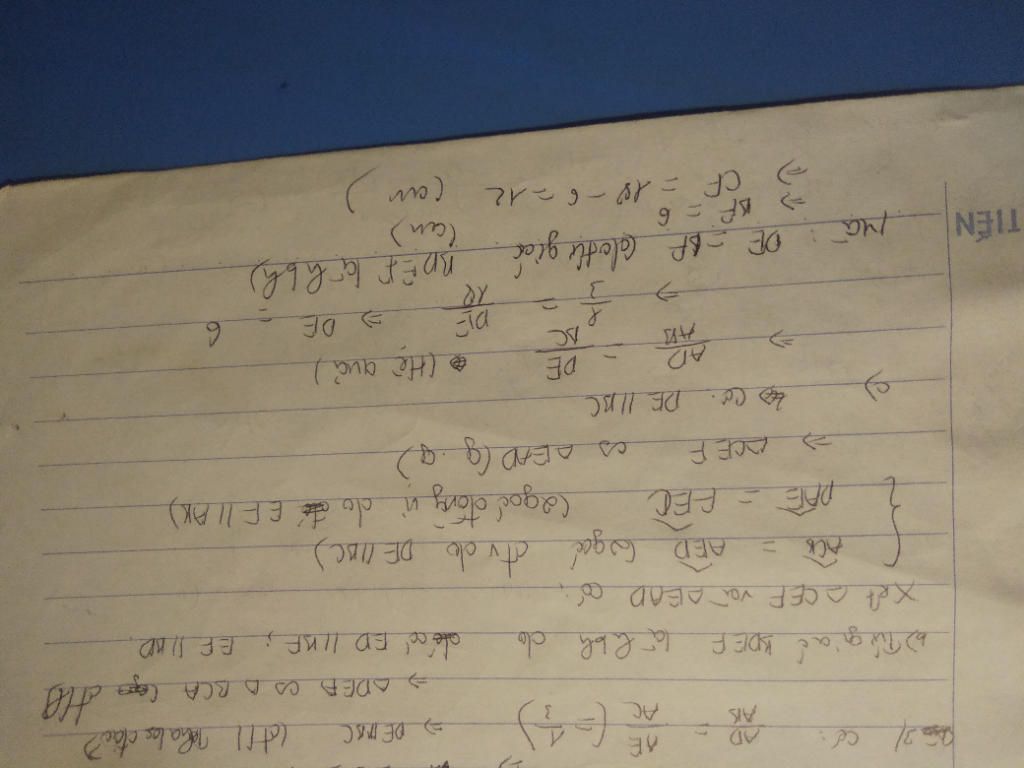 a) có: AD/AB = AE/AC (= 1/3) ⇒ DE//BC (đ/l Talet đảo)
⇒ ΔDEA ∽ ΔBCA
b) Tứ giác BDEF là hbh do có ED // BF; EF // BD.
Xét ΔCEF và ΔEAD có:
ACB = AED (2 góc đv do DE//BC)
DAE = FEC (2 góc đồng vị do EF//AB)
⇒ ΔCEF ∽ ΔEAD (g.g)
c) có: DE//BC
⇒ AD/AB = DE/BC (Hệ quả)
⇒ 1/3 = DE/18 ⇒ DE = 6
Mà: DE = BF (do tứ giác BDEF là hbh)
⇒ BF = 6 (cm)
⇒ CF = 18 - 6 = 12 (cm)
TIẾN